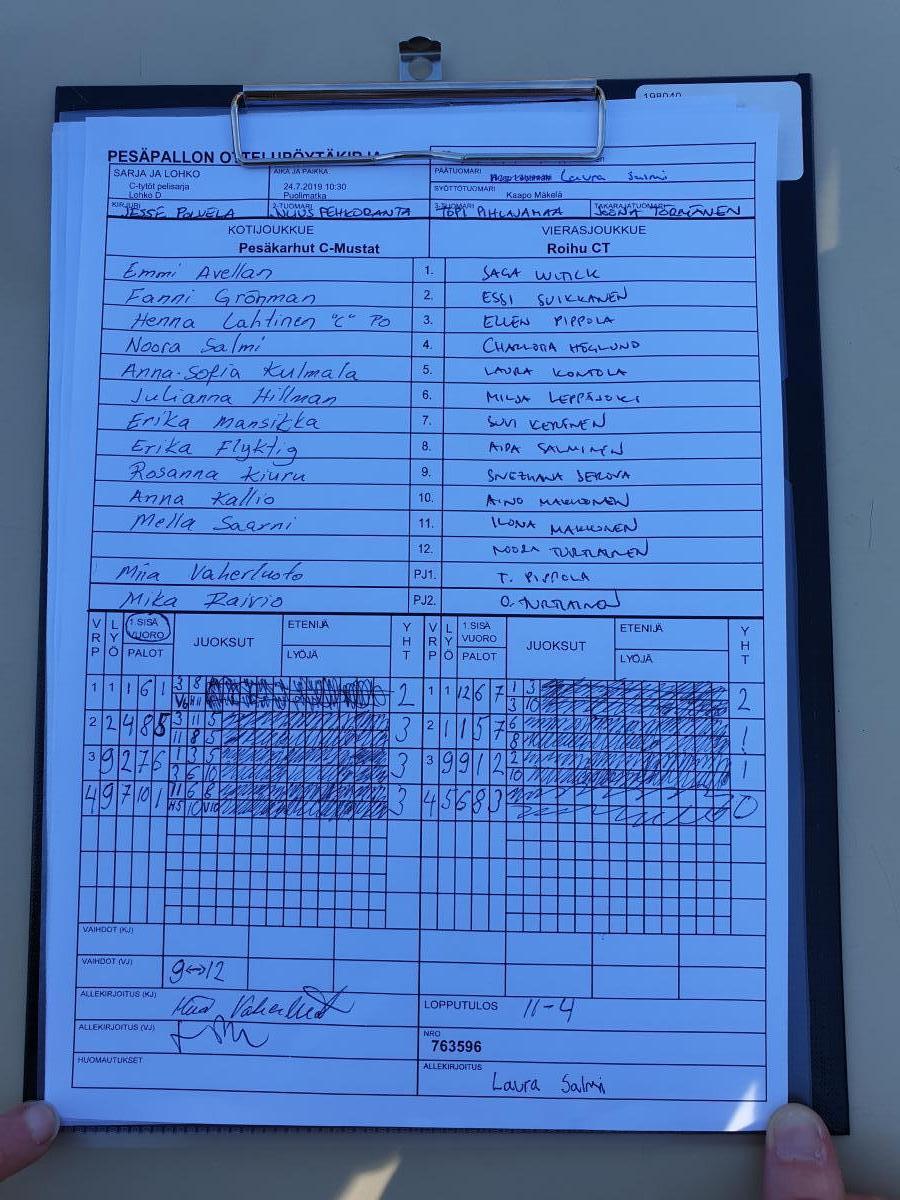 198040
PESÄPALLON OTTELUPÖYTÄKIRJA
SARJA JA LOHKO
C-tytöt pelisarja
Lohko D
AIKA JA PAIKKA
24.7.2019 10:30
Puolimatka
PÄÄTUOMARI
Laura Salmi
SYÖTTÖTUOMARI
Kaapo Mäkelä
KIRJURI
JESSE
2-TUOMARI
3-TUOMARI
TOPI PIHLAJAMAA
TAKARAJATUOMARI
JOONA TÖRMÄNEN
KOTIJOUKKUE
Pesäkarhut C-Mustat
VIERASJOUKKUE
Roihu CT
Emmi Avellan 1. SAGA WITICK
Fanni Gröhman 2. ESSI SUIKKANEN
Henna Lahtinen "C" PO 3. ELLEN PIPPOLA
Noora Salmi 4. CHARLOTTA HÖGLUND
Anna-Sofia Kulmala 5. LAURA KONTOLA
Julianna Hillman 6. MILJA LEPPÄJOKI
Erika Mansikka 7. SUVI KETONEN
Erika Flyktig 8. AIDA SALMINEN
Rosanna Kiuru 9. SNEZHANA SEROVA
Anna Kallio 10. AINO MAKKONEN
Mella Saarni 11. ILONA MAKKONEN
12. NOORA TURTIAINEN
Miia Vaherluoto PJ1. T. PIPPOLA
Mika Raivio PJ2. O. TURTIAINEN
VRP LYÖ 1.SISÄ VUORO PALOT JUOKSUT ETENIJÄ LYÖJÄ YHT VRP LYÖ 1.SISÄ VUORO PALOT JUOKSUT ETENIJÄ LYÖJÄ YHT
1 1 1 6 1 3 8 2 1 1 12 6 7 1 3 2
3 10
2 2 4 8 5 3 11 5 3 2 1 1 5 7 6 1
11 8 5 8
3 9 2 7 6 1 3 5 3 3 9 9 1 2 2 1
3 6 10 10
4 9 7 10 1 11 6 8 3 4 5 6 8 3 0
VAIHDOT (KJ)
VAIHDOT (VJ) 9↔12
ALLEKIRJOITUS (KJ) Miia Vaherluoto
LOPPUTULOS 11-4
ALLEKIRJOITUS (VJ)
NRO
763596
HUOMAUTUKSET
ALLEKIRJOITUS
Laura Salmi